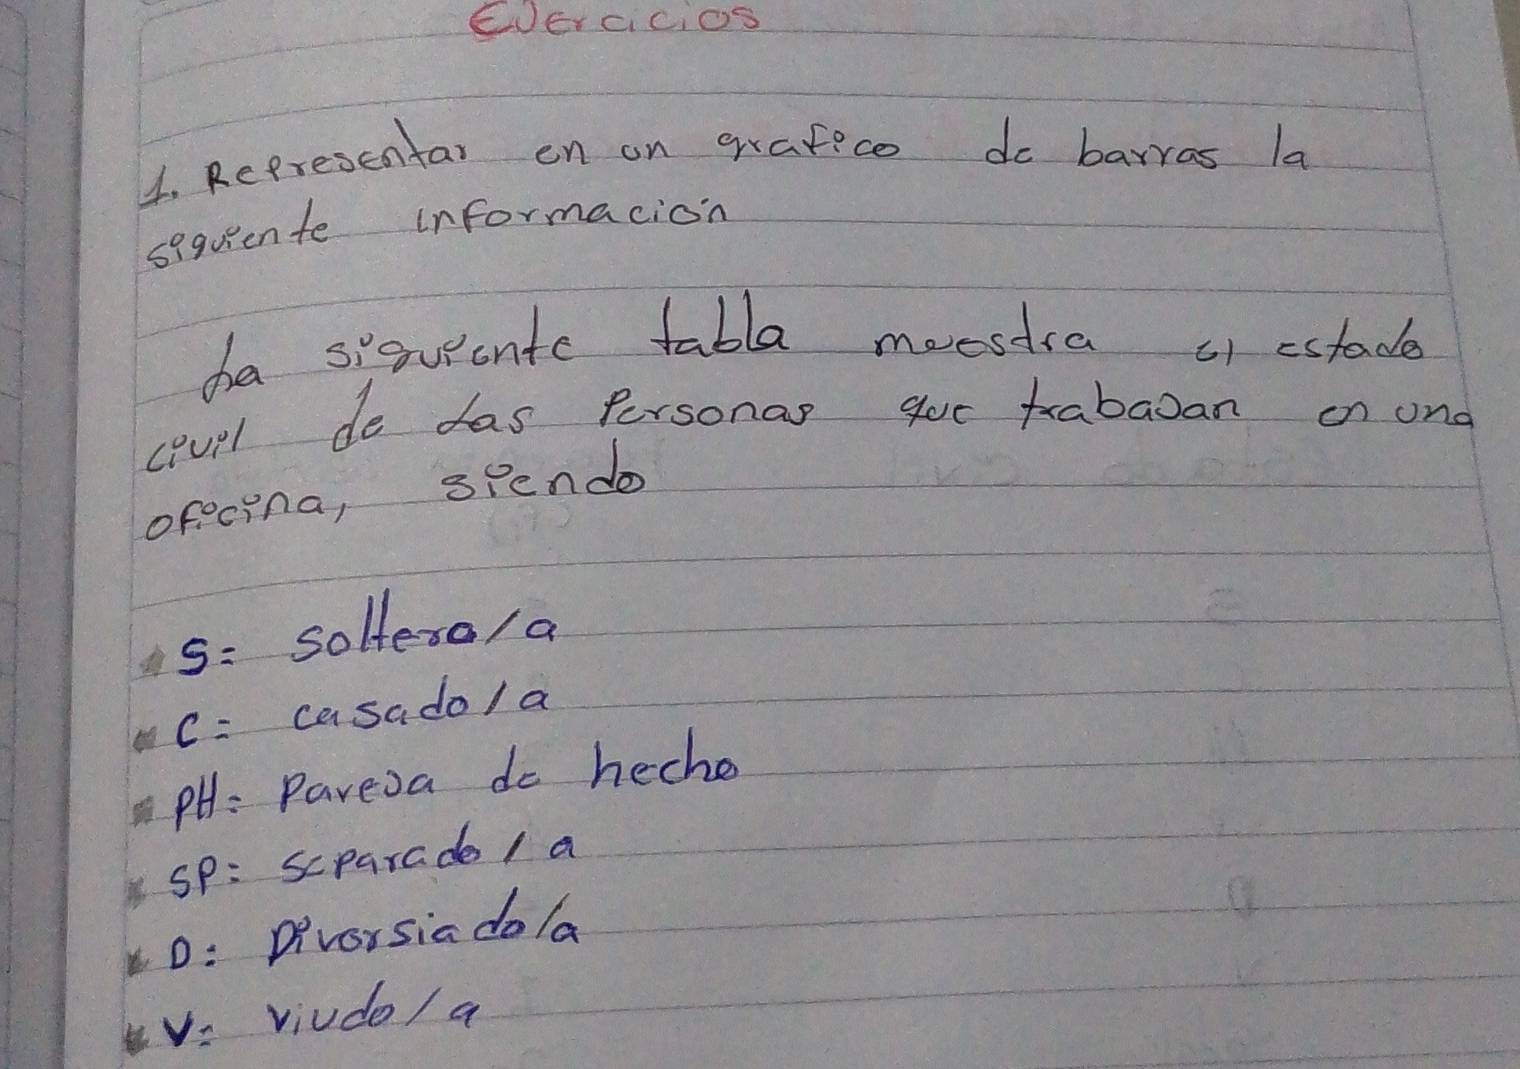 Ejercicios
1. Representar en un grafico de barras la
siguiente información
La siguiente tabla muestra el estado
civil de las Personas que trabajan en una
oficina, siendo
S= soltero/a
C= casado/a
PH= Pareja de hecho
SP= separado/a
D= Divorsiado/a
V= viudo/a